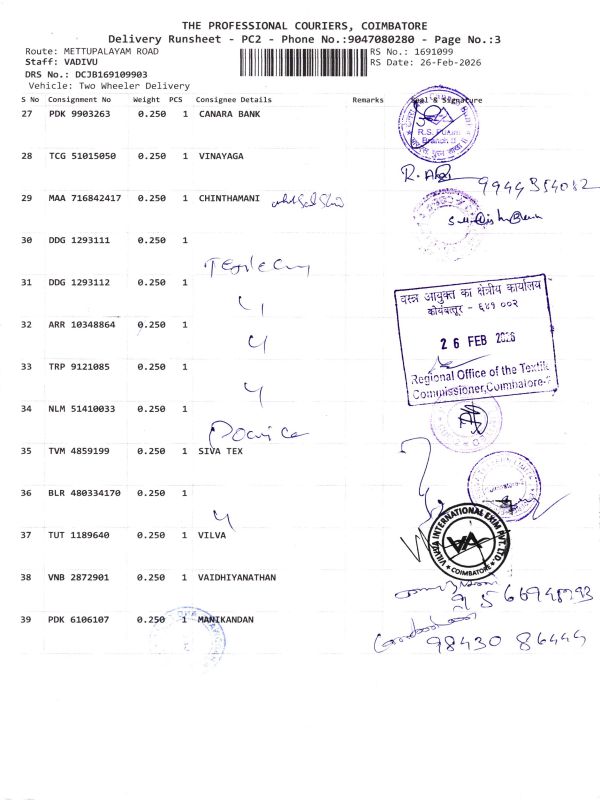 THE PROFESSIONAL COURIERS, COIMBATORE
Delivery Runsheet - PC2 - Phone No.:9047080280 - Page No.:3
Route: METTUPALAYAM ROAD
RS No.: 1691099
Staff: VADIVU
RS Date: 26-Feb-2026
DRS No.: DCJB169109903
Vehicle: Two Wheeler Delivery
S No Consignment No Weight PCS Consignee Details Remarks Seal & Signature
27 PDK 9903263 0.250 1 CANARA BANK
R.S. Puram
Branch II
28 TCG 51015050 0.250 1 VINAYAGA
9944354082
29 MAA 716842417 0.250 1 CHINTHAMANI
30 DDG 1293111 0.250 1
31 DDG 1293112 0.250 1
वस्त्र आयुक्त का क्षेत्रीय कार्यालय
कोयंबत्तूर - ६४१ ००२
26 FEB 2026
Regional Office of the Textile
Commissioner, Coimbatore-2
32 ARR 10348864 0.250 1
33 TRP 9121085 0.250 1
34 NLM 51410033 0.250 1
35 TVM 4859199 0.250 1 SIVA TEX
36 BLR 480334170 0.250 1
37 TUT 1189640 0.250 1 VILVA
VILVA INTERNATIONAL EXIM PVT. LTD.
VA
COIMBATORE
38 VNB 2872901 0.250 1 VAIDHIYANATHAN
39 PDK 6106107 0.250 1 MANIKANDAN
98430 86444